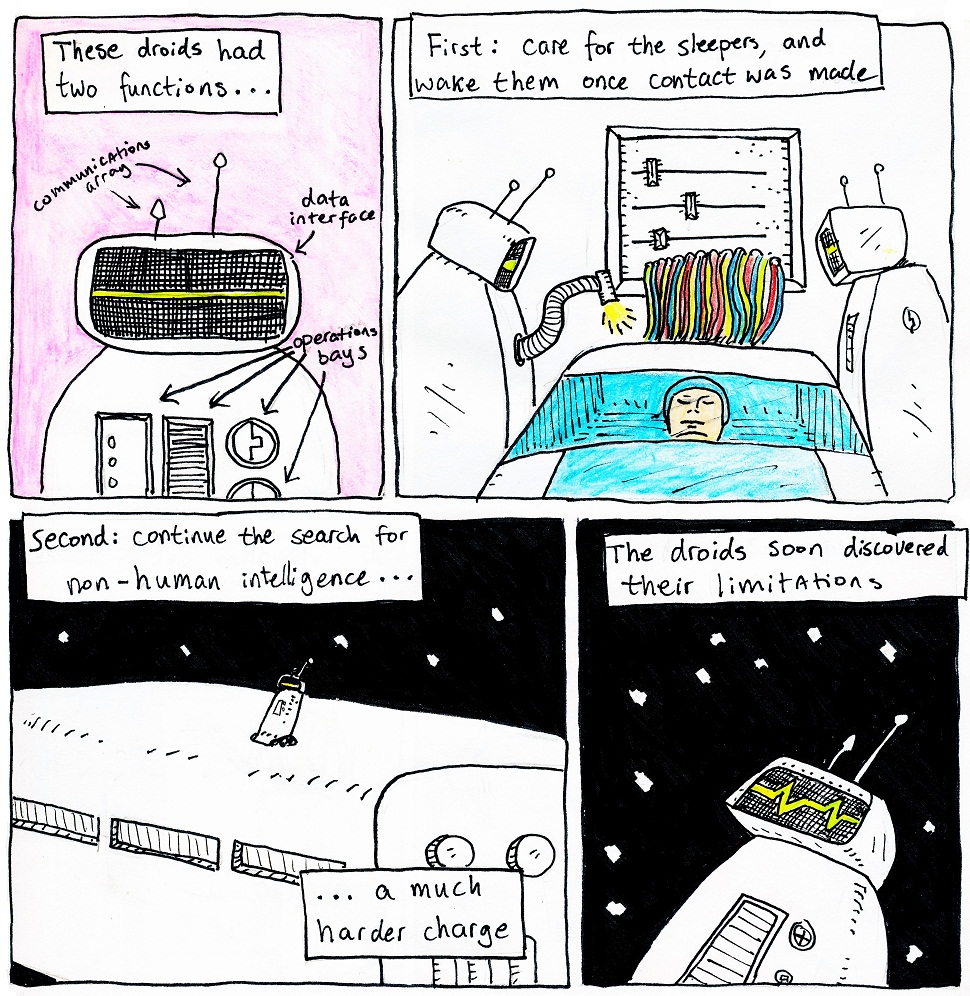 These droids had
two functions...
communications
array
data
interface
operations
bays
First: care for the sleepers, and
wake them once contact was made
Second: continue the search for
non-human intelligence...
... a much
harder charge
The droids soon discovered
their limitations